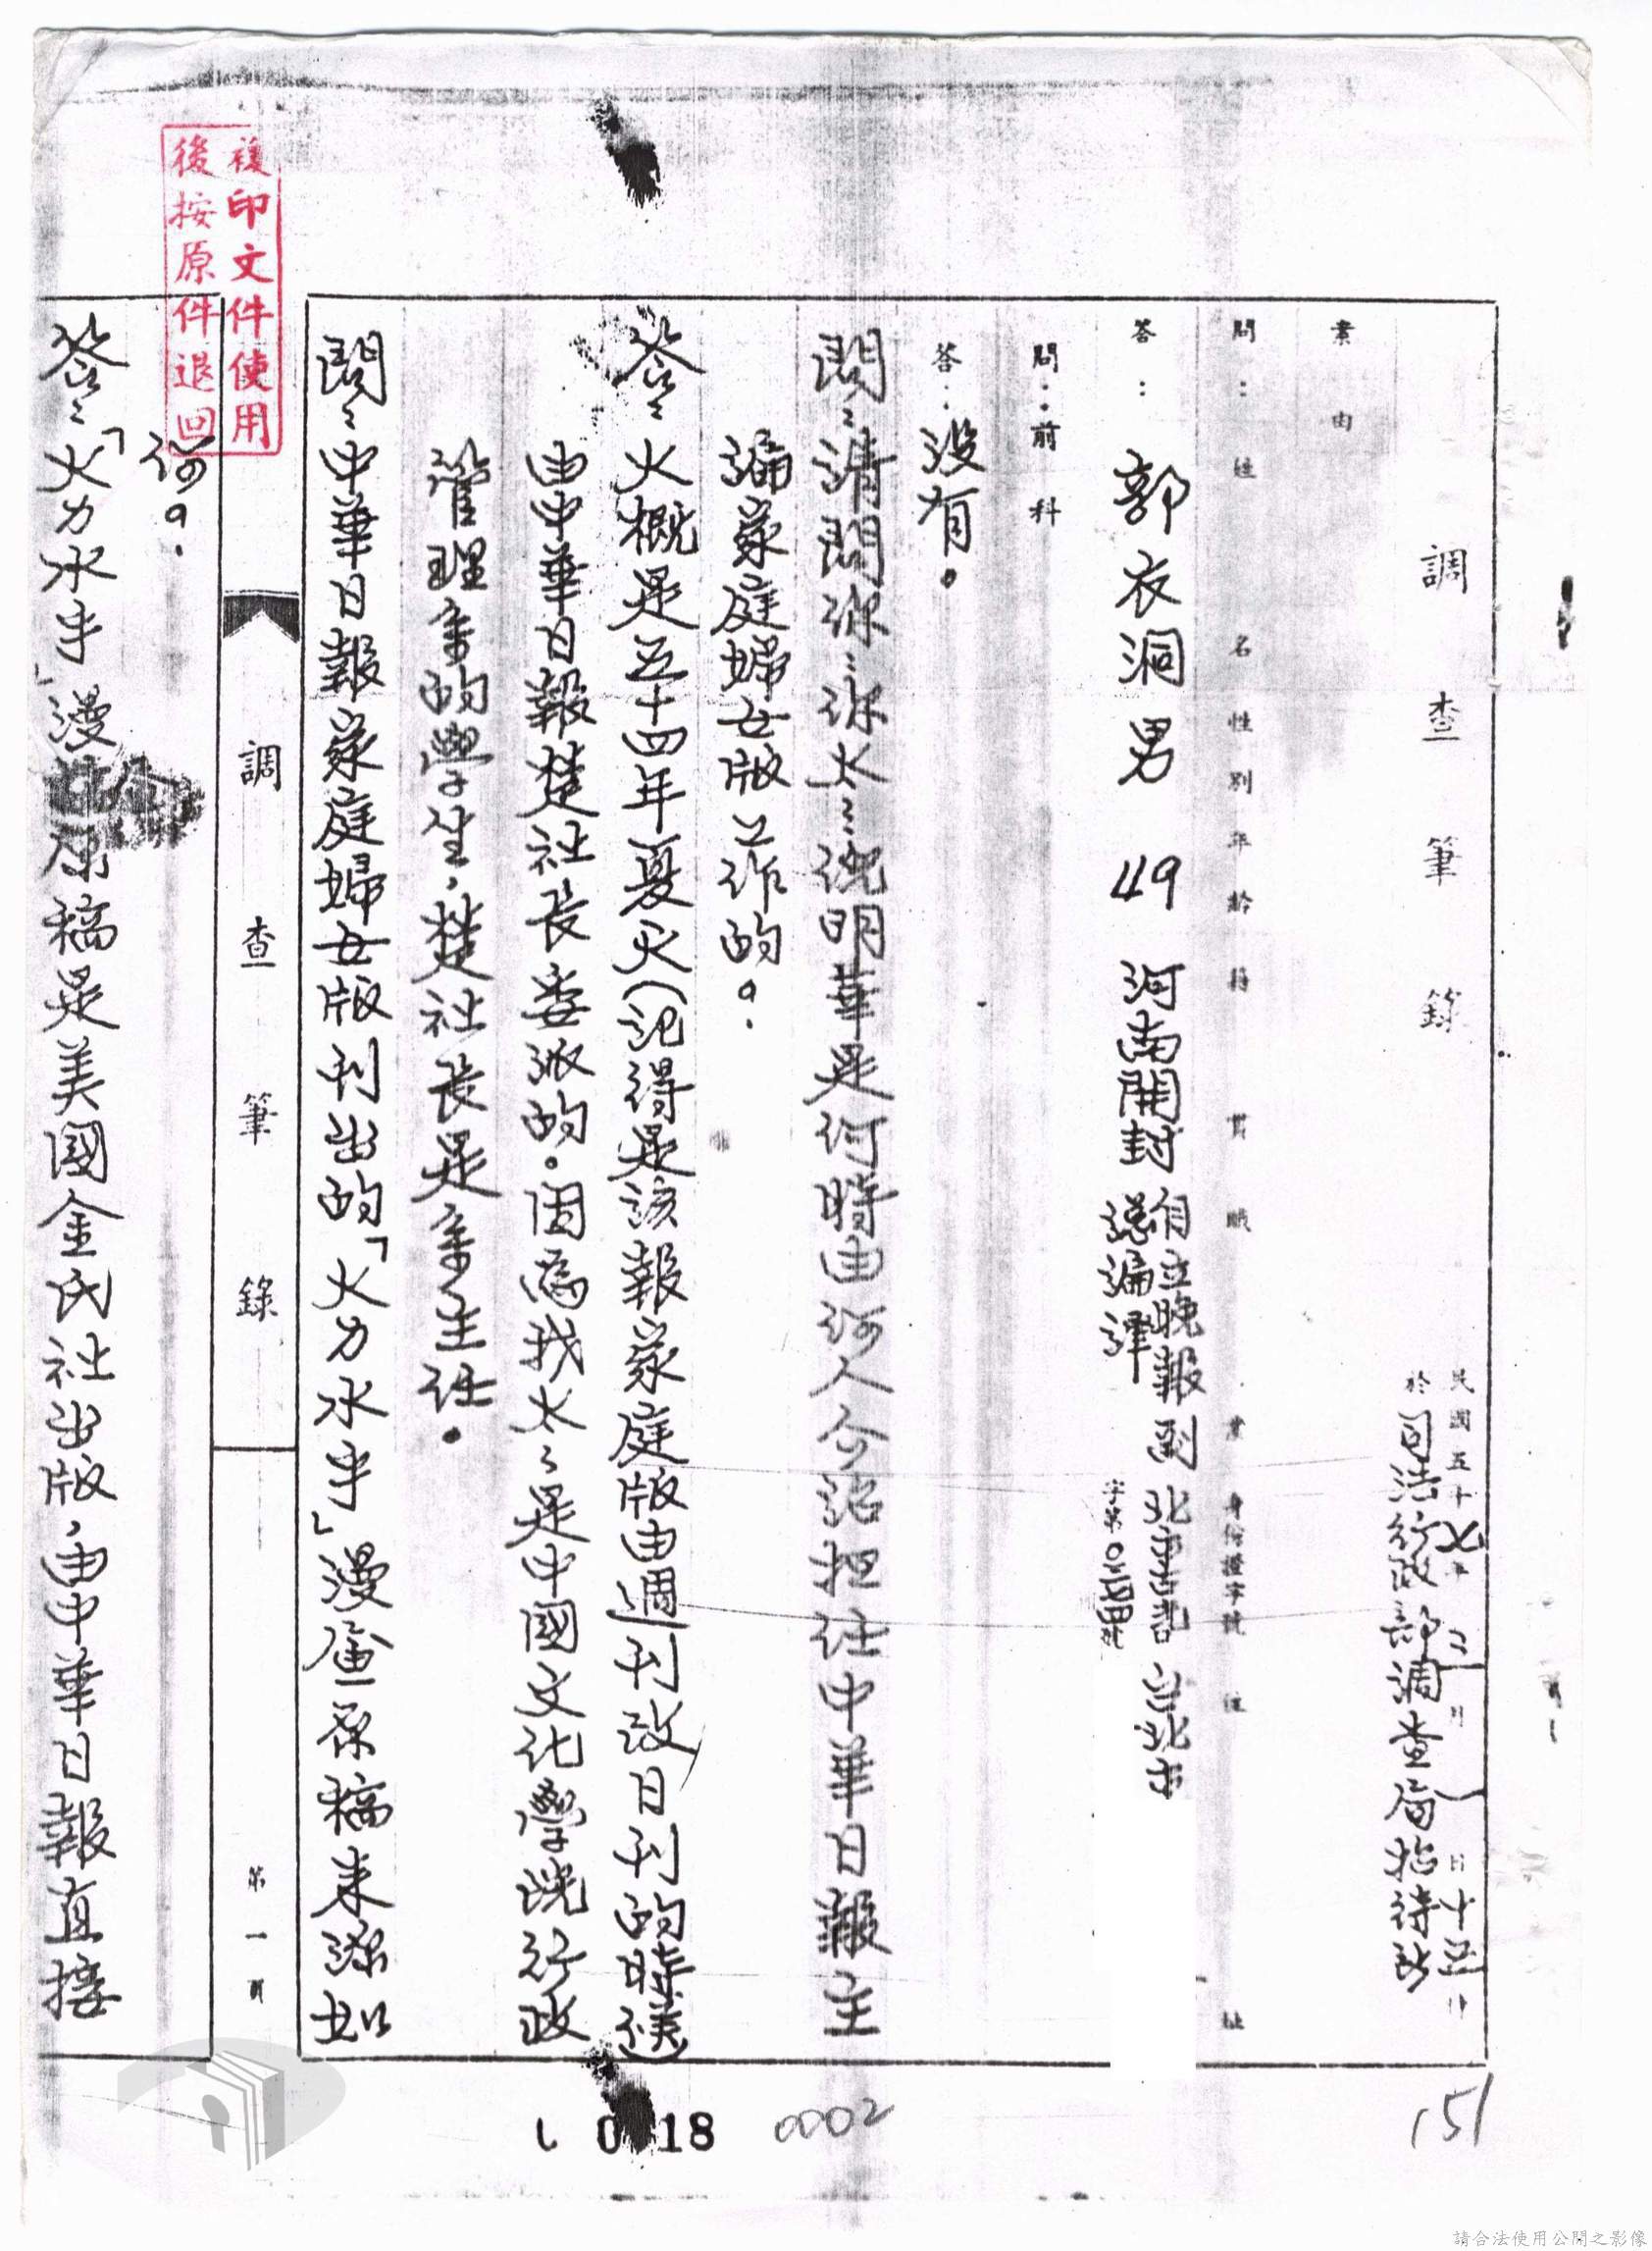 調查筆錄
民國五十七年二月一日十五時
於司法行政部調查局招待所
案由
問：姓名性別年齡籍貫職業身份證字號住址
答：郭衣洞 男 49 河南開封 自立晚報副總編譯 字第 號 台北市
問：前科
答：沒有。
問：請問你：你太太：倪明華是何時由何人介紹担任中華日報主
編家庭婦女版工作的？
答：大概是五十四年夏天（記得是該報家庭版由週刊改日刊的時候）
由中華日報楚社長委派的。因為我太太是中國文化學院行政
管理系的學生，楚社長是系主任。
問：中華日報家庭婦女版刊出的「大力水手」漫画原稿來源如
調查筆錄
第一頁
何？
答：「大力水手」漫画原稿是美國金氏社出版，由中華日報直接
複印文件使用
後按原件退回
18
0002
151
請合法使用公開之影像